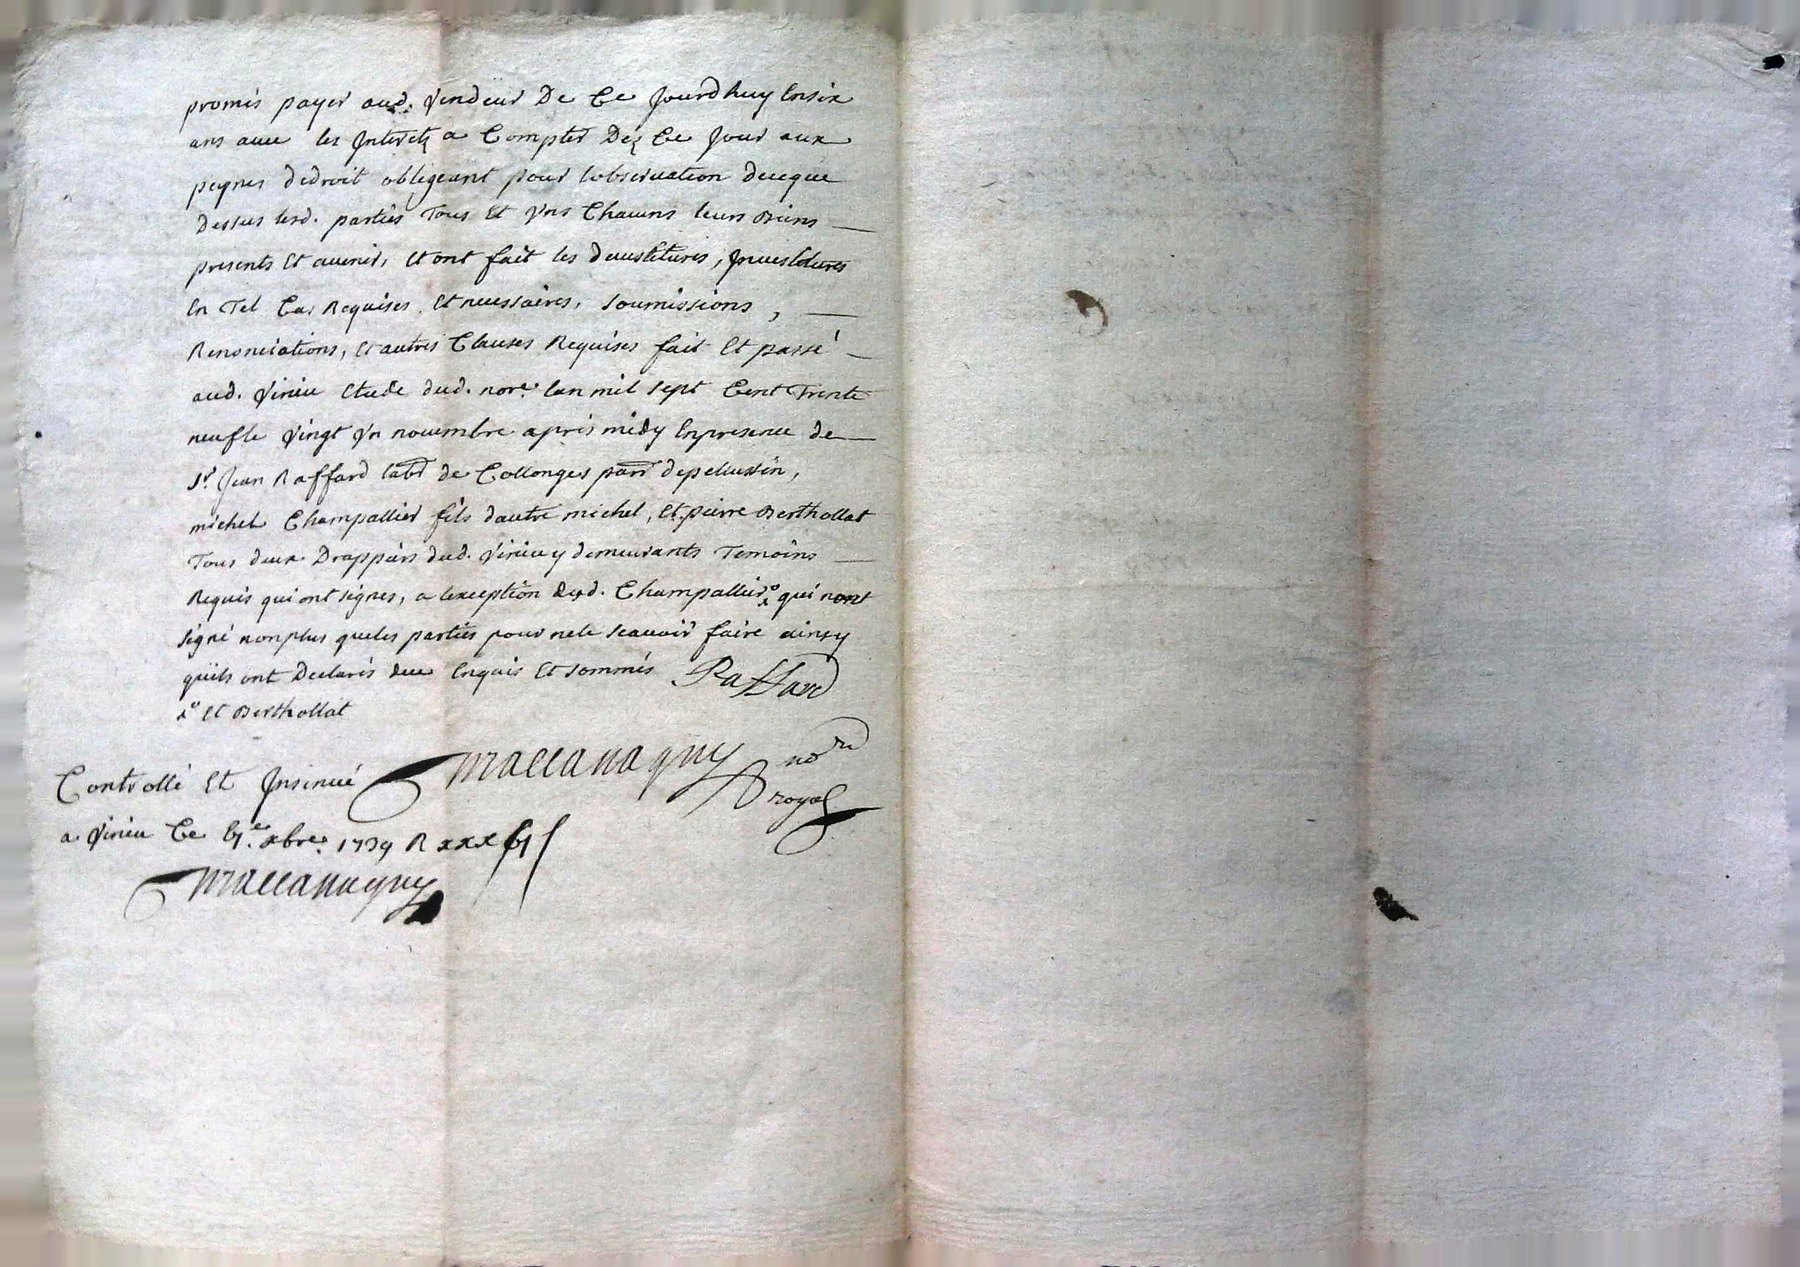 promis payer aud. vendeur De Ce Jourdhuy Ensix
ans auec les Interetz a Compter Dez Ce Jour aux
peynes dedroit obligeant pour lobseruation deceque
dessus lesd. parties Tous Et Vns Chacuns leurs Biens
presents Et auenir, Et ont fait les deuestitures, Inuestitures
En Tel Cas Requises Et necessaires, soumissions,
Renonciations, Et autres Clauses Requises fait Et passé
aud. Virieu Etude dud. nore. Lan mil sept Cent Trente
neuf le Vingt Vn nouembre apres midy Enpresence de
Sr. Jean Raffard labr de Collonges parr depelussin,
michel Champallier fils dautre michel, Et pierre Berthollat
Tous deux Drappiers dud. Virieu y demeurants Temoins
Requis qui ont signes, a lexception dud. Champallier qui nont
signé nonplus queles parties pour nele scauoir faire ainsy
quils ont Declarés de ce Enquis Et sommés Raffard
Et Berthollat
Maccanaguy nore
royal
Controllé Et Insinué
a Virieu Ce xbre. 1739 R xxx
Maccanaguy